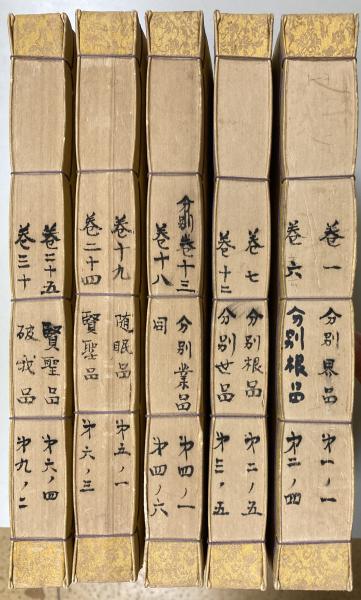 卷一
分別界品
才一ノ一
卷六
分別根品
才二ノ四
卷七
分別根品
才二ノ五
卷十二
分別世品
才三ノ五
分別卷十三
分別業品
才四ノ一
卷十八
同
才四ノ六
卷十九
随眠品
才五ノ一
卷二十四
賢聖品
才六ノ三
卷二十五
賢聖品
才六ノ四
卷三十
破我品
才九ノ二